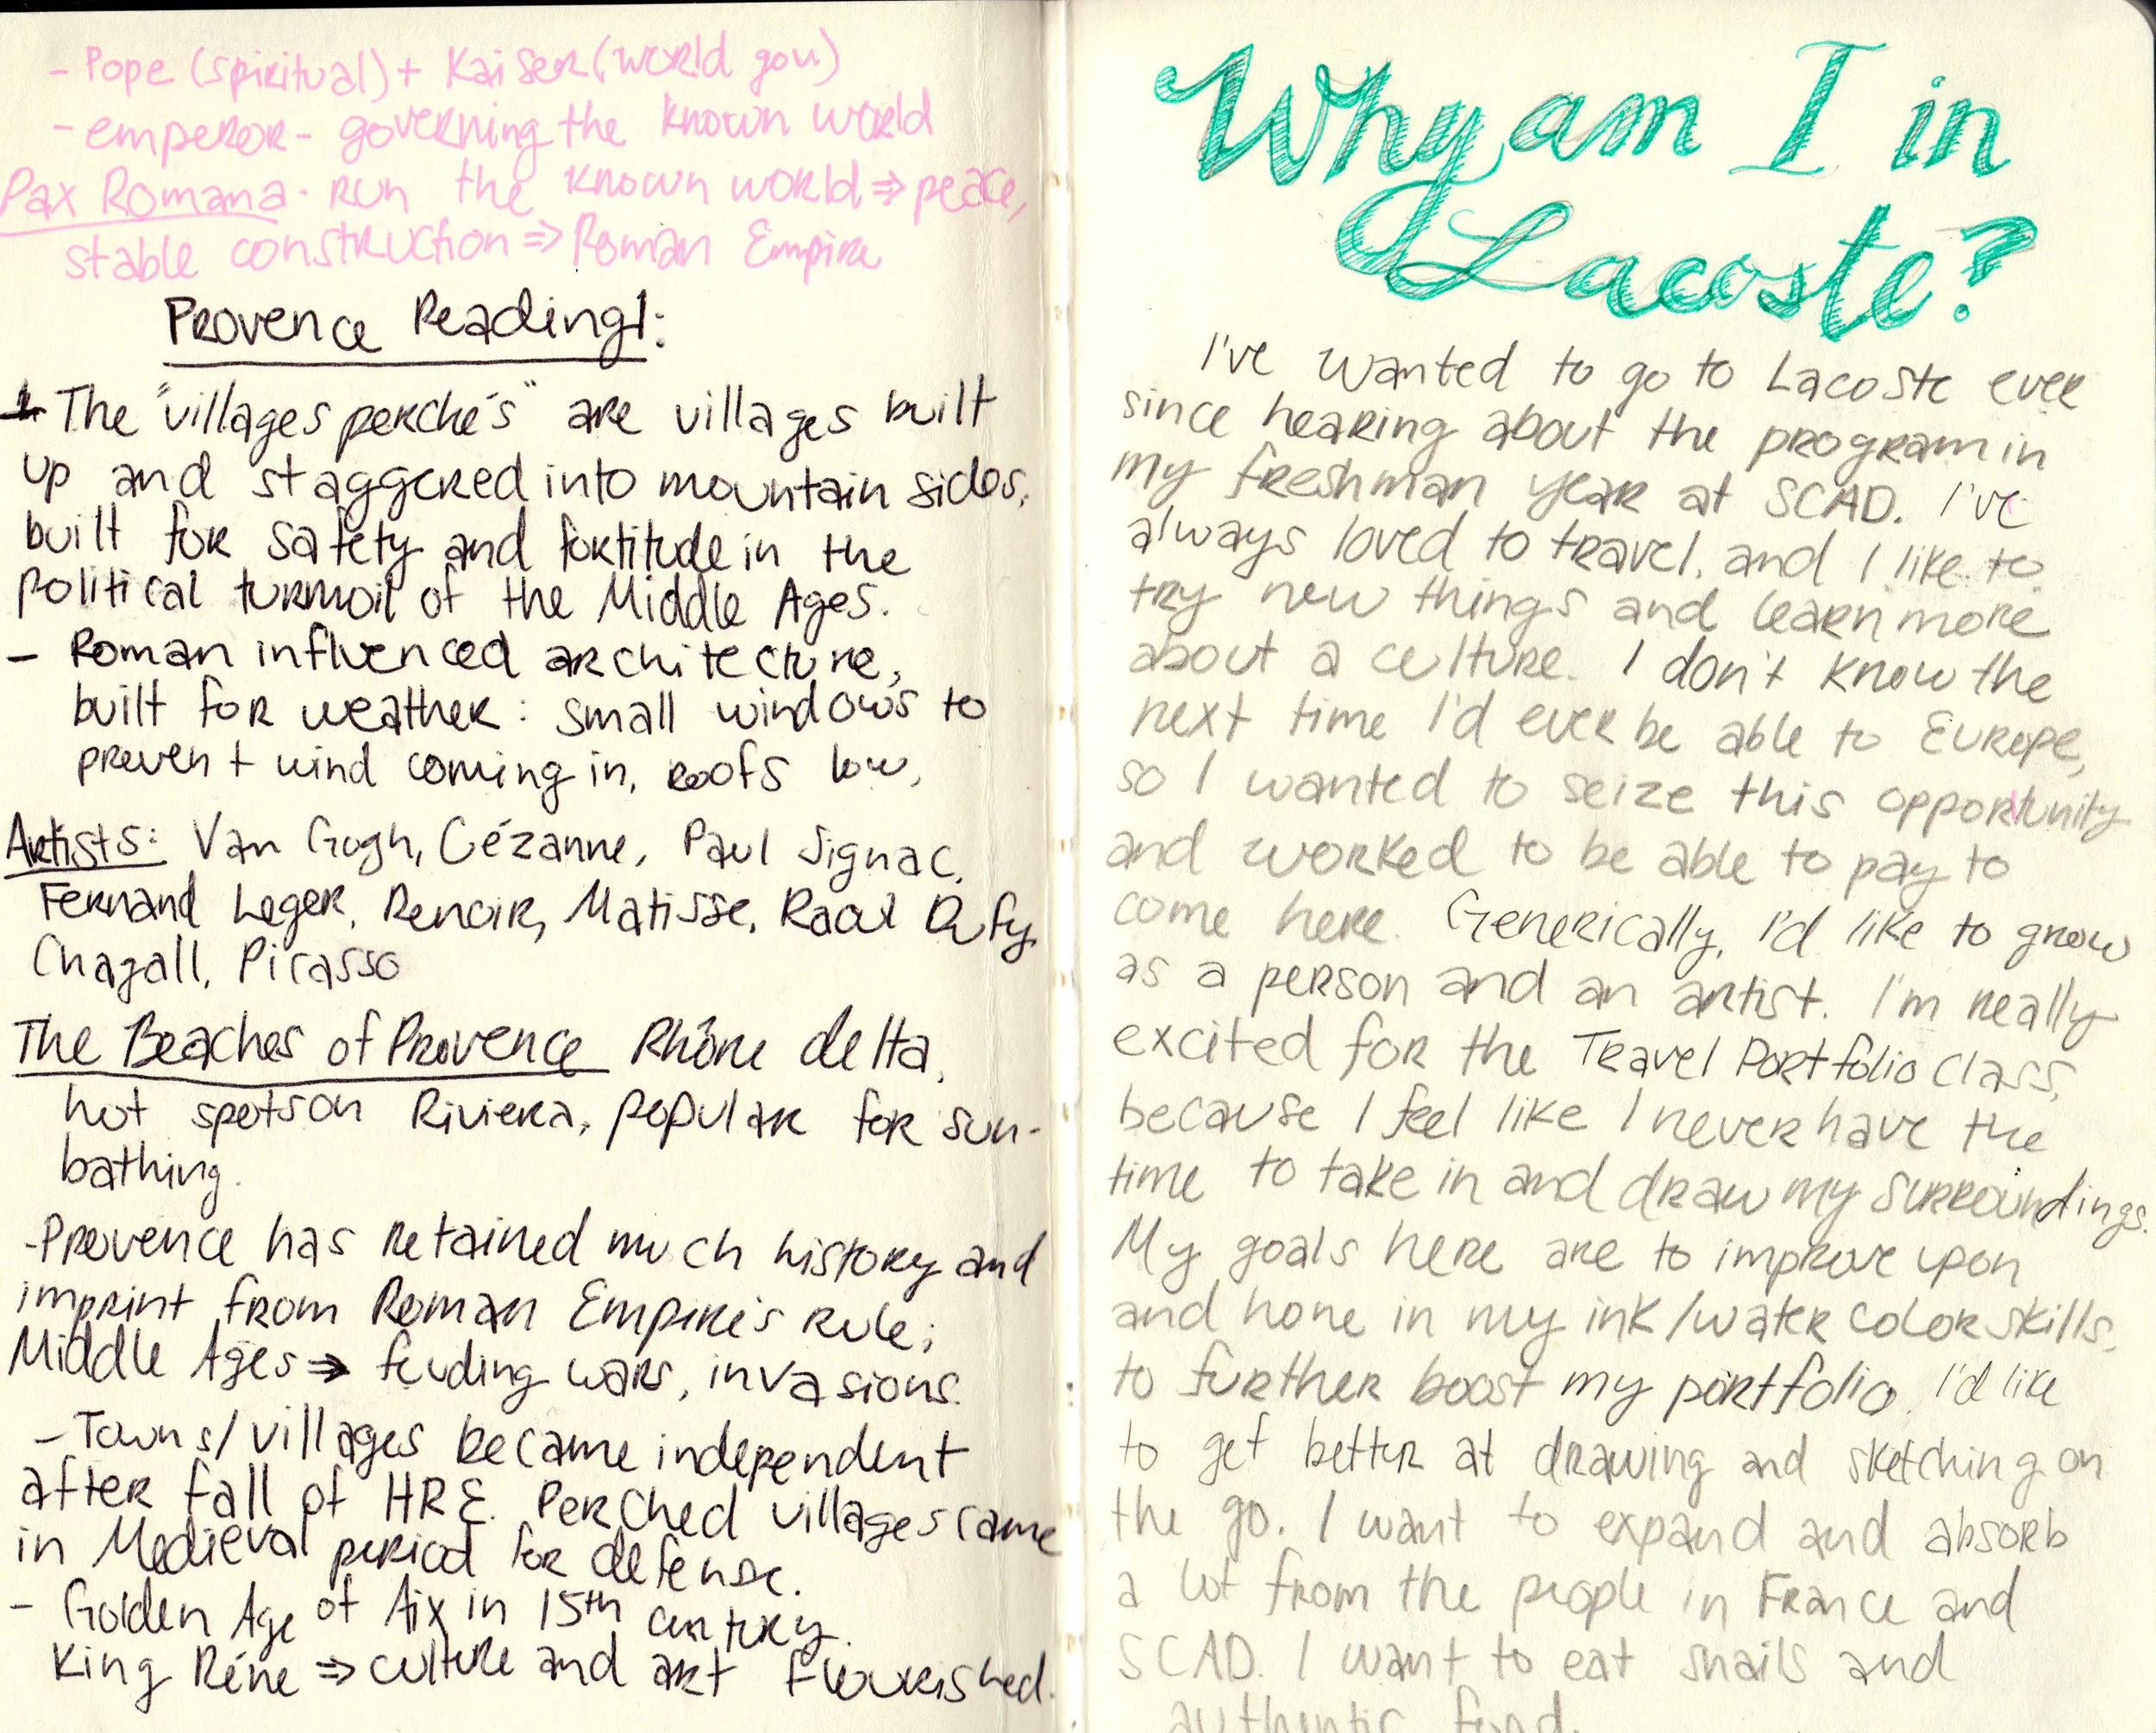 - Pope (spiritual) + Kaiser (world gov)
- emperor - governing the known world
Pax Romana - run the known world ⇒ peace,
stable construction ⇒ Roman Empire
Provence Reading 1:
- The "villages perchés" are villages built
up and staggered into mountain sides,
built for safety and fortitude in the
political turmoil of the Middle Ages.
- Roman influenced architecture,
built for weather: small windows to
prevent wind coming in, roofs low,
Artists: Van Gogh, Cézanne, Paul Signac,
Fernand Leger, Renoir, Matisse, Raoul Dufy,
Chagall, Picasso
The Beaches of Provence Rhône delta,
hot spots on Riviera, popular for sun-
bathing.
- Provence has retained much history and
imprint from Roman Empire's rule;
Middle Ages ⇒ feuding wars, invasions.
- Towns/villages became independent
after fall of HRE. Perched villages came
in Medieval period for defense.
- Golden Age of Aix in 15th century.
King Réne ⇒ culture and art flourished.
Why am I in
Lacoste?
I've wanted to go to Lacoste ever
since hearing about the program in
my freshman year at SCAD. I've
always loved to travel, and I like to
try new things and learn more
about a culture. I don't know the
next time I'd ever be able to Europe,
so I wanted to seize this opportunity
and worked to be able to pay to
come here. Generically, I'd like to grow
as a person and an artist. I'm really
excited for the Travel Portfolio class,
because I feel like I never have the
time to take in and draw my surroundings.
My goals here are to improve upon
and hone in my ink/water color skills,
to further boost my portfolio. I'd like
to get better at drawing and sketching on
the go. I want to expand and absorb
a lot from the people in France and
SCAD. I want to eat snails and
authentic food.